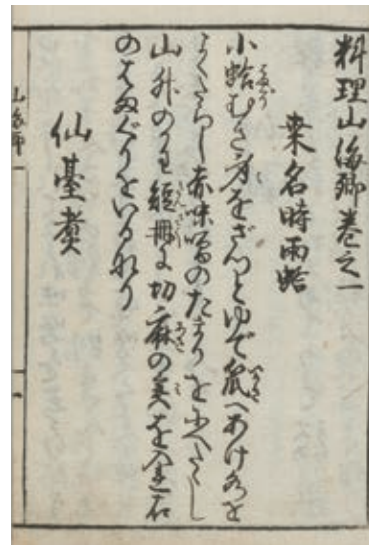 料理山海郷巻之一
桒名時雨蛤
小蛤むき身をざつとゆで笊へあけ水を
よくたらし赤味噌のたまりを
山升のかわ短冊に切麻の実を入右
のはまぐりをいるゝなり
仙臺煑
山海郷一